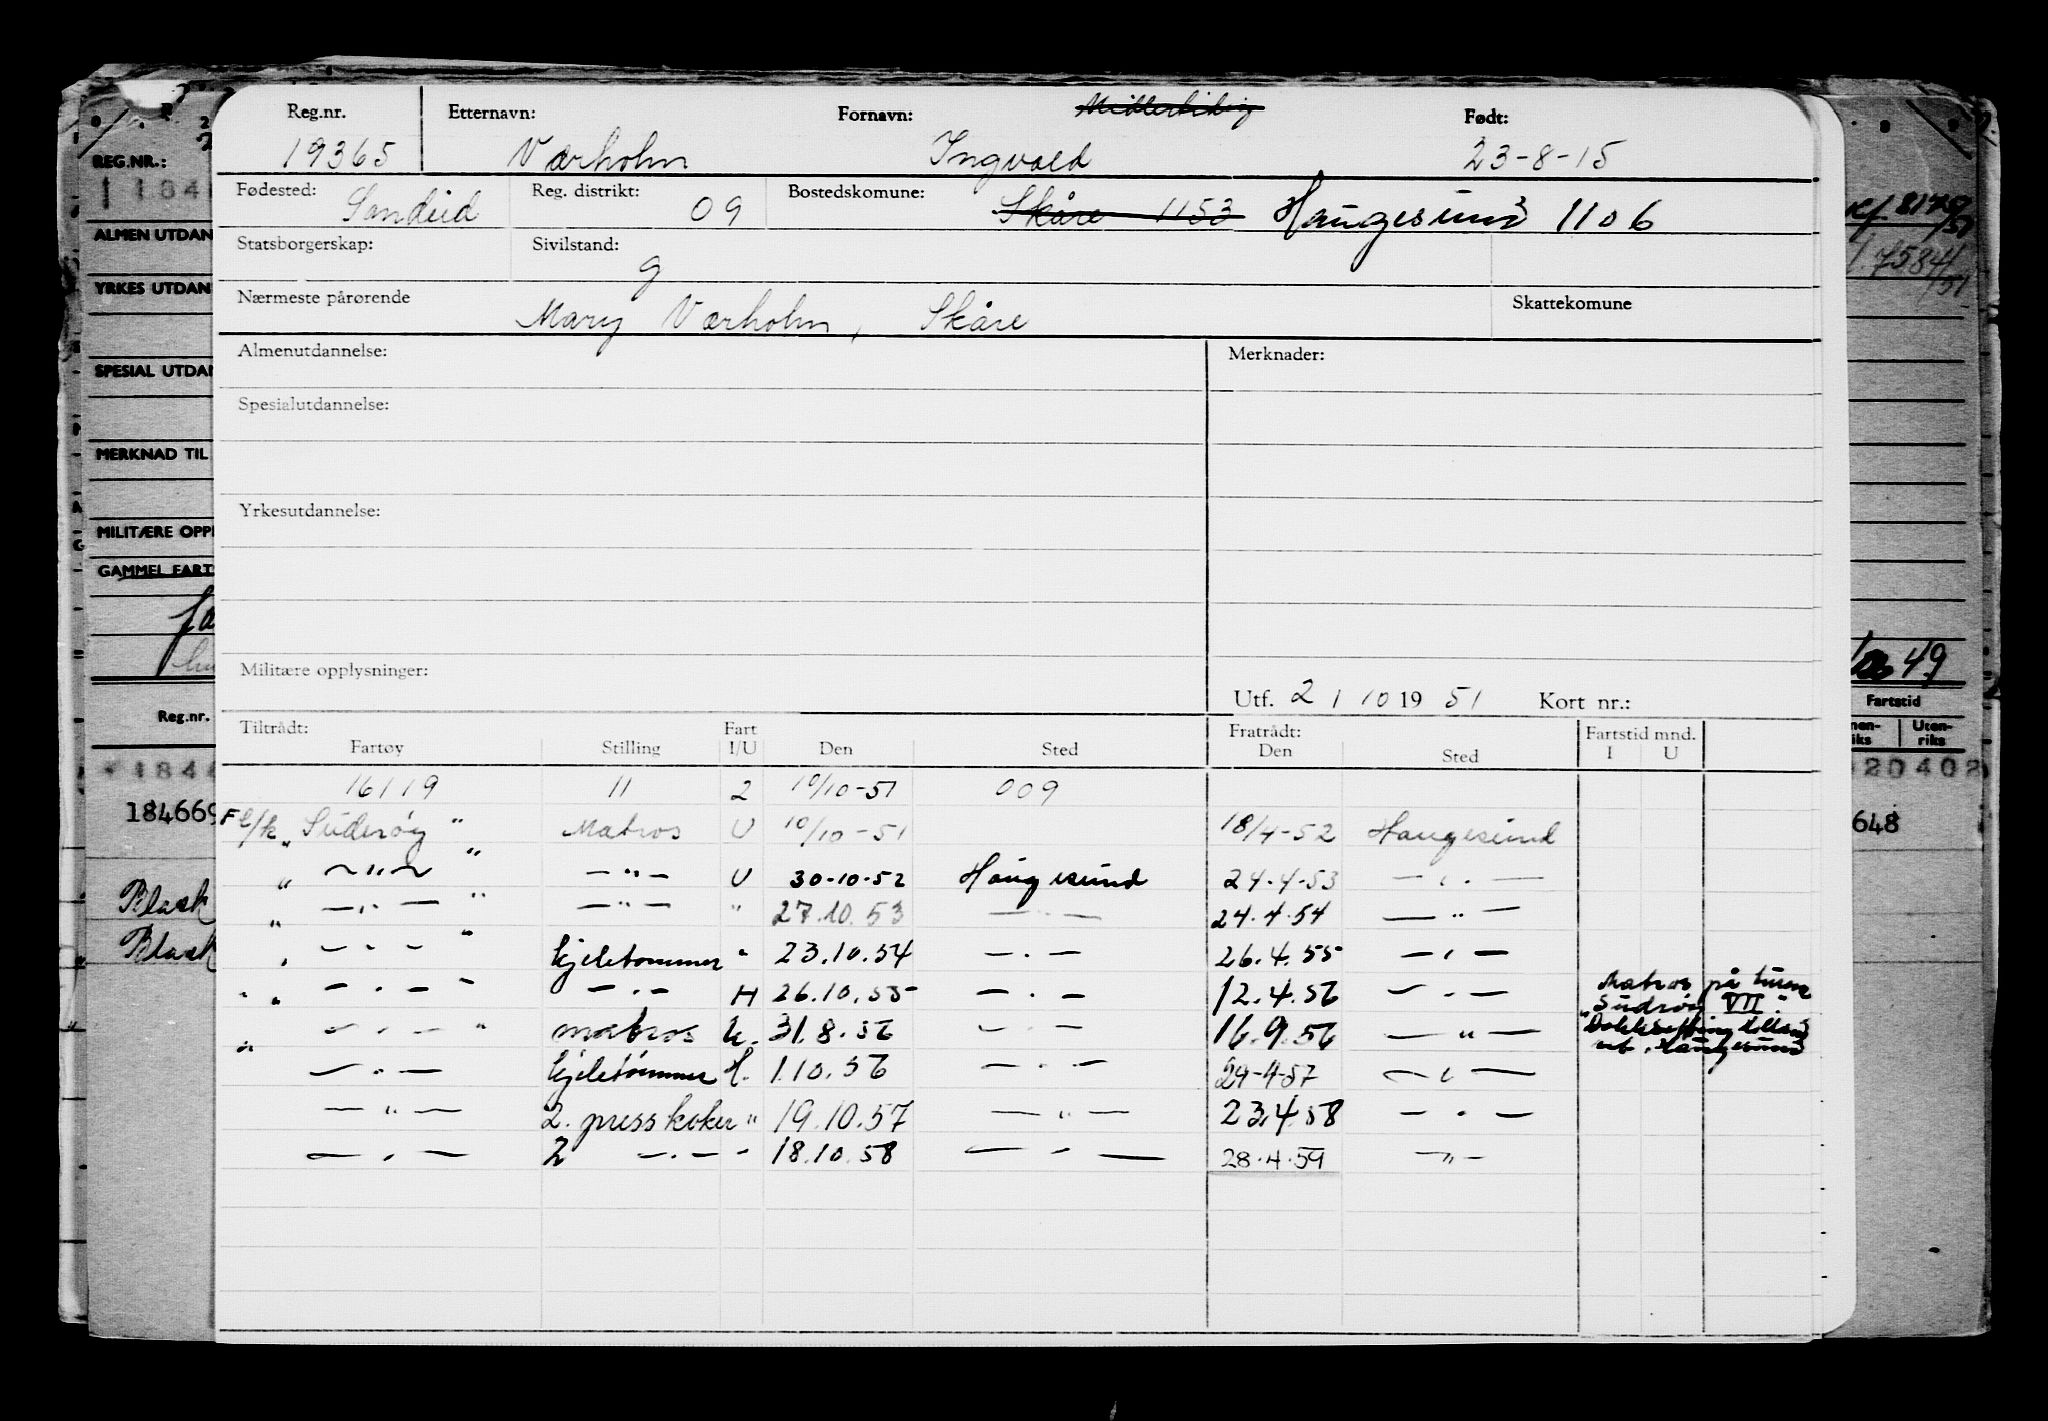 Reg.nr. Etternavn: Fornavn: Født:
19365 Værholm Ingvald 23-8-15
Fødested: Sandeid Reg. distrikt: 09 Bostedskomune: Skåre 1153 Haugesund 1106
Statsborgerskap: Sivilstand: g
Nærmeste pårørende Mary Værholm, Skåre Skattekomune
Almenutdannelse: Merknader:
Spesialutdannelse:
Yrkesutdannelse:
Militære opplysninger:
Utf. 2 / 10 19 51 Kort nr.:
Tiltrådt: Fart Fratrådt: Fartstid mnd.
Fartøy Stilling I/U Den Sted Den Sted I U
16119 11 2 10/10-51 009
F l/k „Suderøy" Matros U 10/10-51 18/4-52 Haugesund
„ —"— " —"— U 30-10-52 Haugesund 24.4.53 —.—
„ —.— " —"— " 27.10.53 —"— 24.4.54 —"—
„ —.— " kjeletømmer " 23.10.54 —.— 26.4.55 —.—
„ —.— " —.— H 26.10.55 —.— 12.4.56 —.— Matros på turen
"Sudrøy VII".
„ —.— " matros U. 31.8.56 —.— 16.9.56 —"—
—.— kjeletømmer H. 1.10.56 —.— 24-4-57 —.—
—"— 2. presskoker " 19.10.57 —"— 23.4.58 —.—
—.— 2 —.— - 18.10.58 —.— 28.4.59 —"—
REG.NR.:
1184
ALMEN UTDAN
YRKES UTDAN
SPESIAL UTDA
MERKNAD TIL
MILITÆRE OPP
GAMMEL FART
Reg.nr.
184669
Black
Black
7584/51
49
Fartstid
Uten-
riks
20402
648